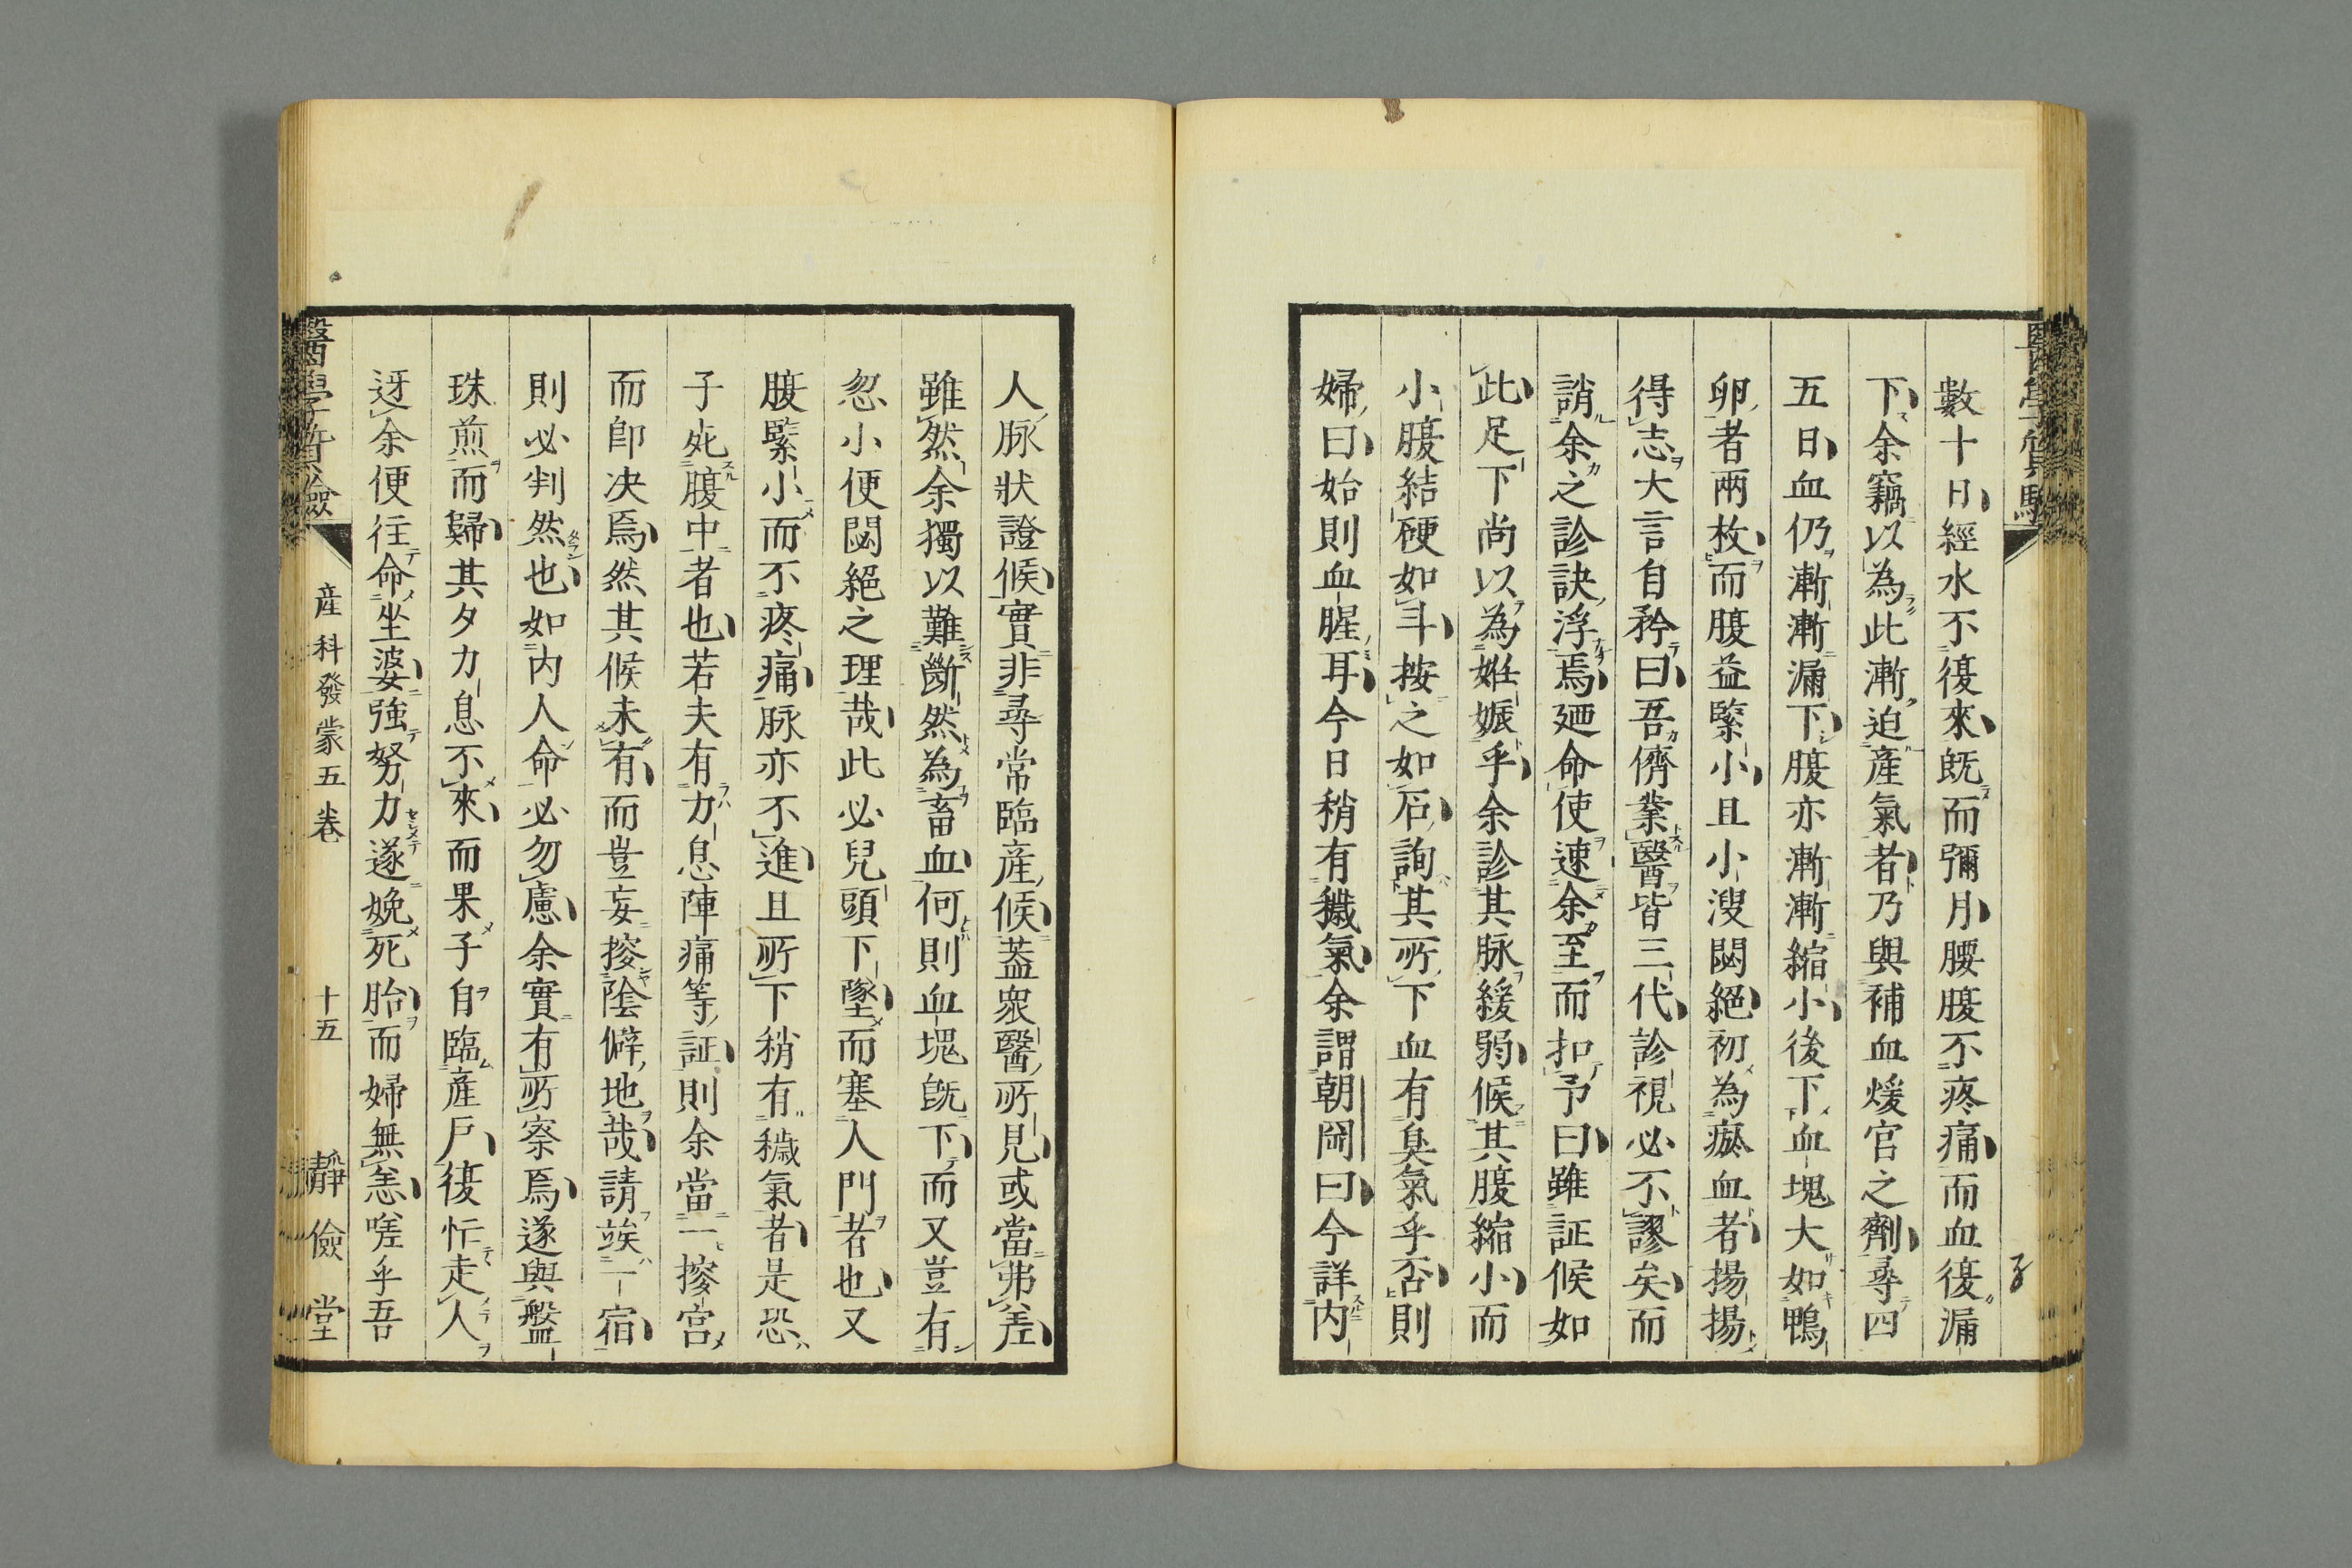 數十日經水不復來既而彌月腰腹不疼痛而血復漏
下余竊以為此漸迫產氣者乃與補血煖宮之劑尋四
五日血仍漸漸漏下腹亦漸漸縮小後下血塊大如鴨
卵者兩枚而腹益緊小且小溲閟絕初為瘀血者揚揚
得志大言自矜曰吾儕業醫皆三代診視必不謬矣而
誚余之診訣浮焉廼命使速余至而扣予曰雖証候如
此足下尚以為姙娠乎余診其脉緩弱候其腹縮小而
小腹結硬如斗按之如石詢其所下血有臭氣乎否則
婦曰始則血腥耳今日稍有穢氣余謂朝岡曰今詳内
人脉狀證候實非尋常臨產候蓋衆醫所見或當弗差
雖然余獨以難斷然為畜血何則血塊既下而又豈有
忽小便閟絕之理哉此必兒頭下墜而塞人門者也又
腹緊小而不疼痛脉亦不進且所下稍有穢氣者是恐
子死腹中者也若夫有力息陣痛等証則余當一搲宮
而卽决焉然其候未有而豈妄搲陰僻地哉請竢一宿
則必判然也如内人命必勿慮余實有所察焉遂與盤
珠煎而歸其夕力息不來而果子自臨產戶復忙走人
迓余便往命坐婆強努力遂娩死胎而婦無恙嗟乎吾
醫學質驗
産科發蒙五卷
十五
靜儉堂